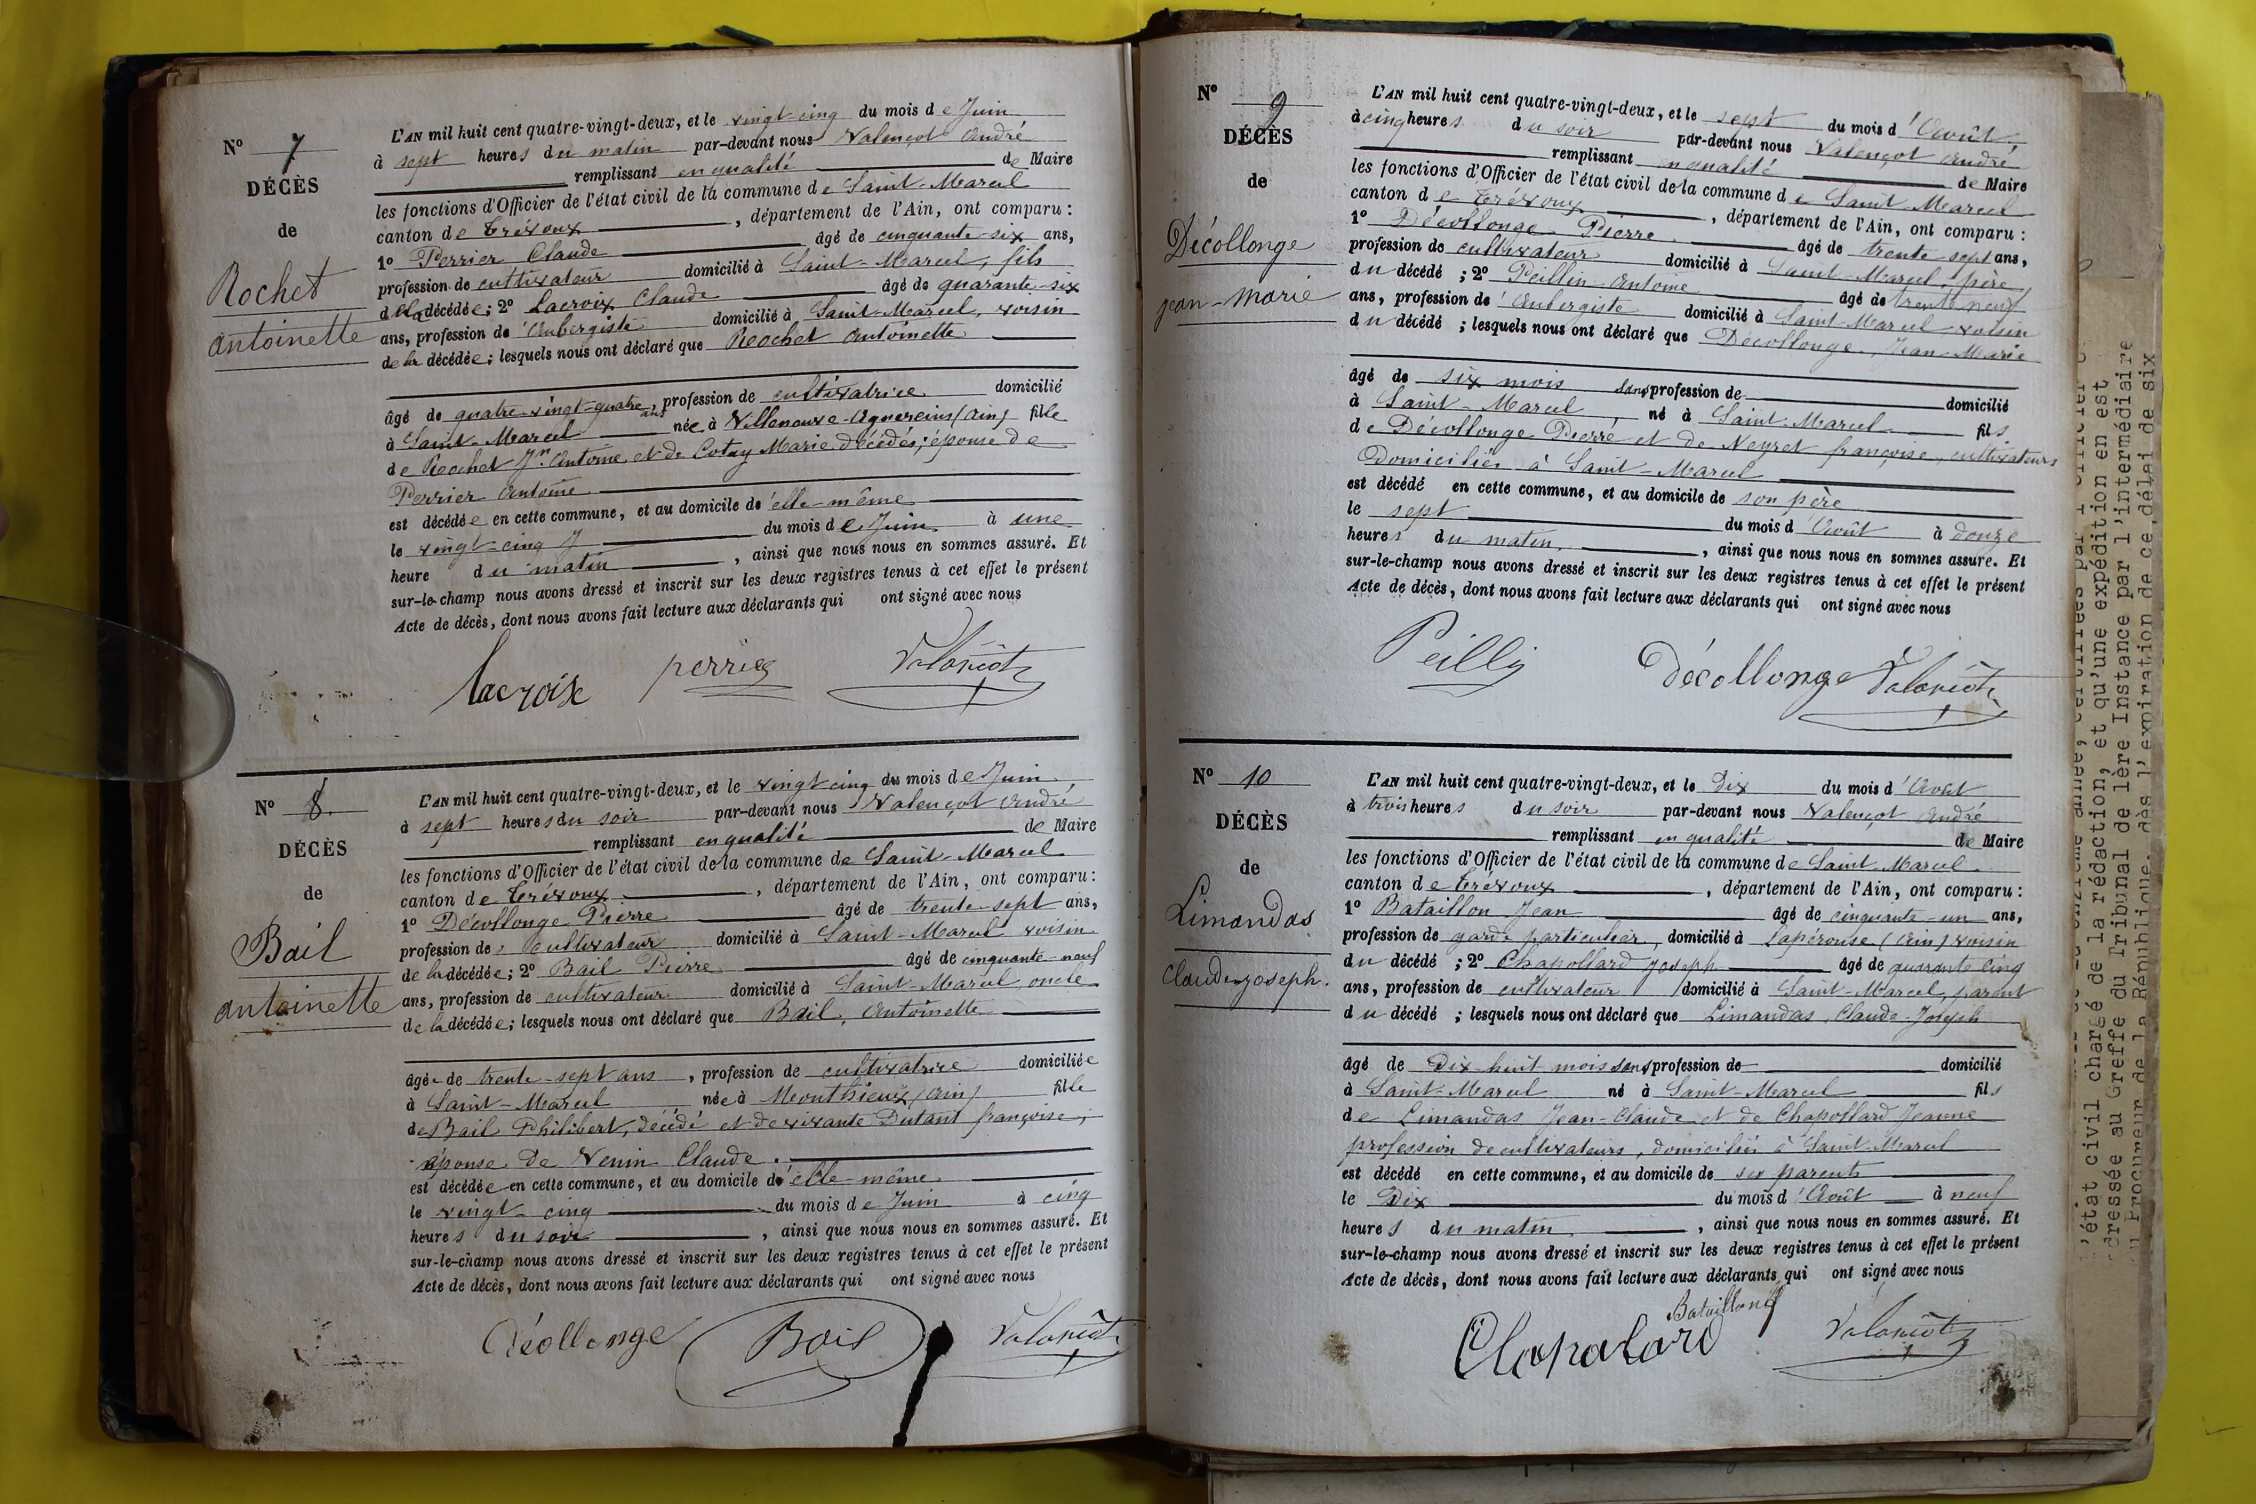 N° 7
DÉCÈS
de
Rochet
antoinette
L'AN mil huit cent quatre-vingt-deux, et le vingt-cinq du mois de Juin
à sept heures du matin par-devant nous Valençot André
remplissant en qualité de Maire
les fonctions d'Officier de l'état civil de la commune de Saint-Marcel
canton de Trévoux, département de l'Ain, ont comparu :
1° Perrier Claude âgé de cinquante-six ans,
profession de cultivateur domicilié à Saint-Marcel, fils
de la décédée ; 2° Lacroix Claude âgé de quarante-six
ans, profession de Aubergiste domicilié à Saint-Marcel, voisin
de la décédée ; lesquels nous ont déclaré que Rochet Antoinette
âgé de quatre-vingt-quatre ans, profession de cultivatrice domicilié
à Saint-Marcel née à Villeneuve-Agnereins (Ain) fille
de Rochet Jn Antoine et de Cotay Marie décédés ; épouse de
Perrier Antoine
est décédée en cette commune, et au domicile d'elle-même
le vingt-cinq du mois de Juin à une
heure du matin, ainsi que nous nous en sommes assuré. Et
sur-le-champ nous avons dressé et inscrit sur les deux registres tenus à cet effet le présent
Acte de décès, dont nous avons fait lecture aux déclarants qui ont signé avec nous
Lacroix perrier Valençot
N° 8
DÉCÈS
de
Bail
antoinette
L'AN mil huit cent quatre-vingt-deux, et le vingt cinq du mois de Juin
à sept heures du soir par-devant nous Valençot André
remplissant en qualité de Maire
les fonctions d'Officier de l'état civil de la commune de Saint-Marcel
canton de Trévoux, département de l'Ain, ont comparu :
1° Décollonge Pierre âgé de trente-sept ans,
profession de cultivateur domicilié à Saint-Marcel voisin
de la décédée ; 2° Bail Pierre âgé de cinquante-neuf
ans, profession de cultivateur domicilié à Saint-Marcel oncle
de la décédée ; lesquels nous ont déclaré que Bail, Antoinette
âgée de trente-sept ans, profession de cultivatrice domiciliée
à Saint-Marcel née à Monthieux (Ain) fille
de Bail Philibert, décédé et de vivante Dutant françoise,
épouse de Venin Claude.
est décédée en cette commune, et au domicile d'elle-même
le vingt-cinq du mois de Juin à cinq
heures du soir, ainsi que nous nous en sommes assuré. Et
sur-le-champ nous avons dressé et inscrit sur les deux registres tenus à cet effet le présent
Acte de décès, dont nous avons fait lecture aux déclarants qui ont signé avec nous
Décollonge Bail Valençot
N° 9
DÉCÈS
de
Décollonge
jean-marie
L'AN mil huit cent quatre-vingt-deux, et le sept du mois d'Août
à cinq heures du soir par-devant nous Valençot André
remplissant en qualité de Maire
les fonctions d'Officier de l'état civil de la commune de Saint-Marcel
canton de Trévoux, département de l'Ain, ont comparu :
1° Décollonge Pierre âgé de trente-sept ans,
profession de cultivateur domicilié à Saint-Marcel, père
du décédé ; 2° Peillin Antoine âgé de trente-neuf
ans, profession de Aubergiste domicilié à Saint-Marcel voisin
du décédé ; lesquels nous ont déclaré que Décollonge, Jean-Marie
âgé de six mois sans profession de domicilié
à Saint-Marcel, né à Saint-Marcel fils
de Décollonge Pierre et de Neyret françoise, cultivateurs
Domiciliés à Saint-Marcel
est décédé en cette commune, et au domicile de son père
le sept du mois d'Août à douze
heures du matin, ainsi que nous nous en sommes assuré. Et
sur-le-champ nous avons dressé et inscrit sur les deux registres tenus à cet effet le présent
Acte de décès, dont nous avons fait lecture aux déclarants qui ont signé avec nous
Peillin Décollonge Valençot
N° 10
DÉCÈS
de
Limandas
Claude-joseph.
L'AN mil huit cent quatre-vingt-deux, et le Dix du mois d'Août
à trois heures du soir par-devant nous Valençot André
remplissant en qualité de Maire
les fonctions d'Officier de l'état civil de la commune de Saint Marcel
canton de Trévoux, département de l'Ain, ont comparu :
1° Bataillon Jean âgé de cinquante-un ans,
profession de garde particulier, domicilié à Lapérouse (Ain) voisin
du décédé ; 2° Chapollard Joseph âgé de quarante cinq
ans, profession de cultivateur domicilié à Saint-Marcel, parent
du décédé ; lesquels nous ont déclaré que Limandas, Claude-Joseph
âgé de Dix-huit mois sans profession de domicilié
à Saint-Marcel né à Saint-Marcel fils
de Limandas Jean-Claude et de Chapollard Jeanne
profession de cultivateurs, domiciliés à Saint-Marcel
est décédé en cette commune, et au domicile de ses parents
le Dix du mois d'Août à neuf
heures du matin, ainsi que nous nous en sommes assuré. Et
sur-le-champ nous avons dressé et inscrit sur les deux registres tenus à cet effet le présent
Acte de décès, dont nous avons fait lecture aux déclarants qui ont signé avec nous
Bataillon
Chapolard Valençot
'état civil chargé de la rédaction, et qu'une expédition en est
dressée au Greffe du Tribunal de 1ère Instance par l'intermédiaire
Procureur de la République, dès l'expiration de ce délai de six